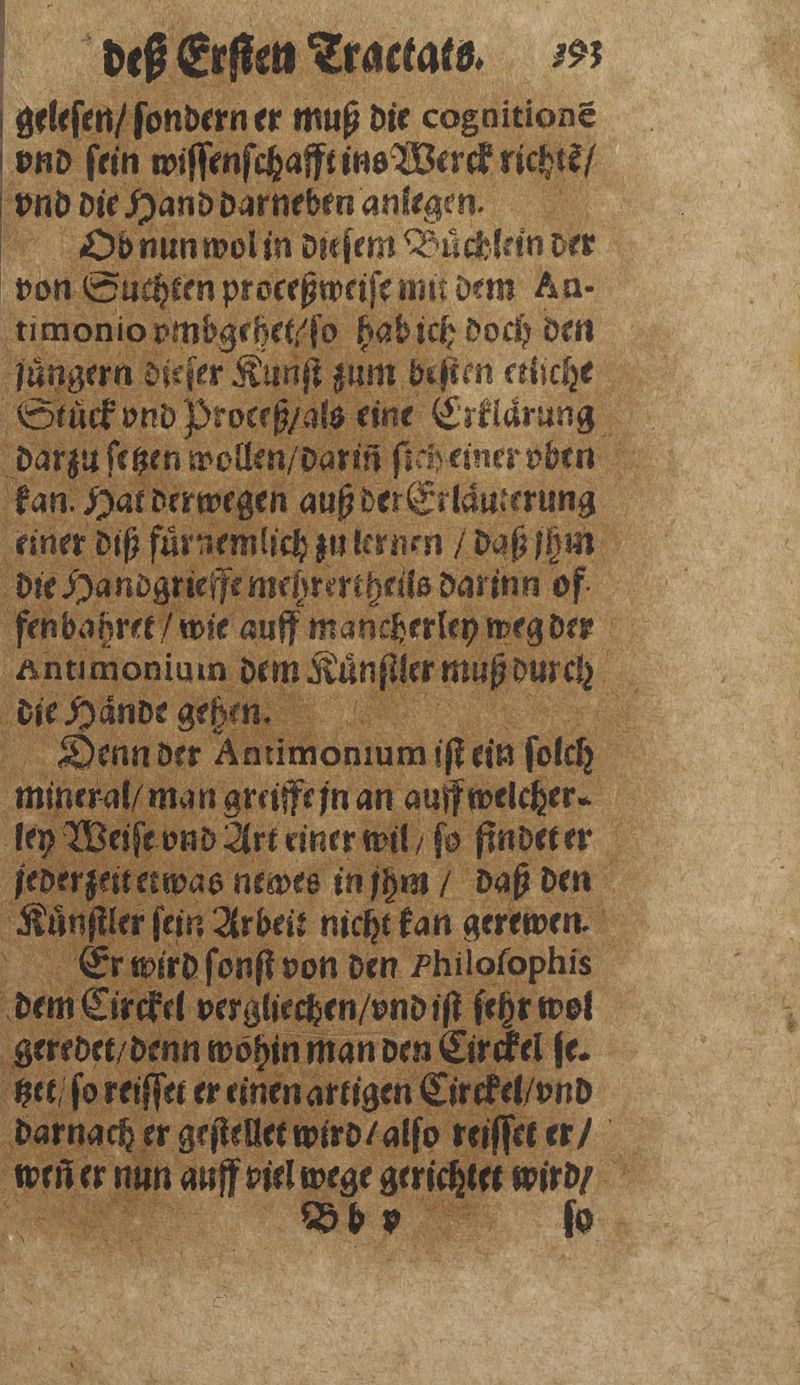 deß Ersten Tractats. 393
gelesen/ sondern er muß die cognitionẽ
vnd sein wissenschafft ins Werck richtẽ/
vnd die Hand darneben anlegen.
Ob nun wol in diesem Büchlein der
von Suchten proceßweise mit dem An-
timonio vmbgehet/ so hab ich doch den
jüngern dieser Kunst zum besten etliche
Stück vnd Proceß/ als eine Erklärung
darzu setzen wollen/ dariñ sich einer vben
kan. Hat derwegen auß der Erläuterung
einer diß fürnemlich zu lernen / daß jhm
die Handgrieffe mehrertheils darinn of-
fenbahret / wie auff mancherley weg der
Antimonium dem Künstler muß durch
die Hände gehen.
Denn der Antimonium ist ein solch
mineral/ man greiffe jn an auff welcher-
ley Weise vnd Art einer wil / so findet er
jederzeit etwas newes in jhm / daß den
Künstler sein Arbeit nicht kan gerewen.
Er wird sonst von den Philosophis
dem Circkel vergliechen/ vnd ist sehr wol
geredet/ denn wohin man den Circkel se-
tzet/ so reisset er einen artigen Circkel/ vnd
darnach er gestellet wird/ also reisset er /
weñ er nun auff viel wege gerichtet wird/
B b v so